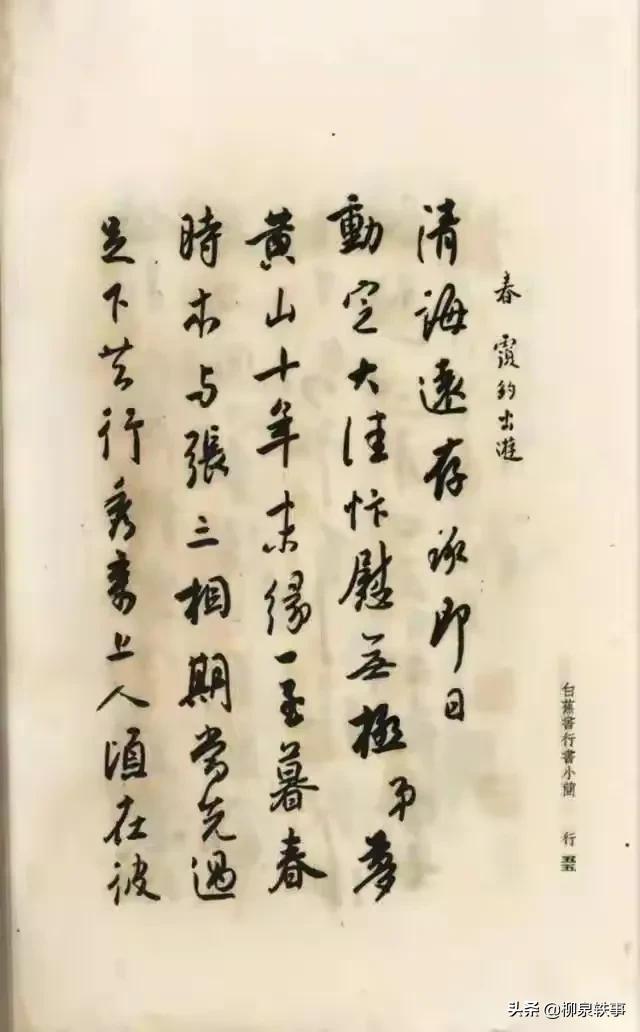 白蕉書行書小簡 行
春 覆約出遊
清誨遠存承即日
動定大佳忭慰无極弟夢
黄山十年未緣一至暮春
時本与張三相期當先過
足下共行秀上人頃在彼
头条 @柳泉轶事